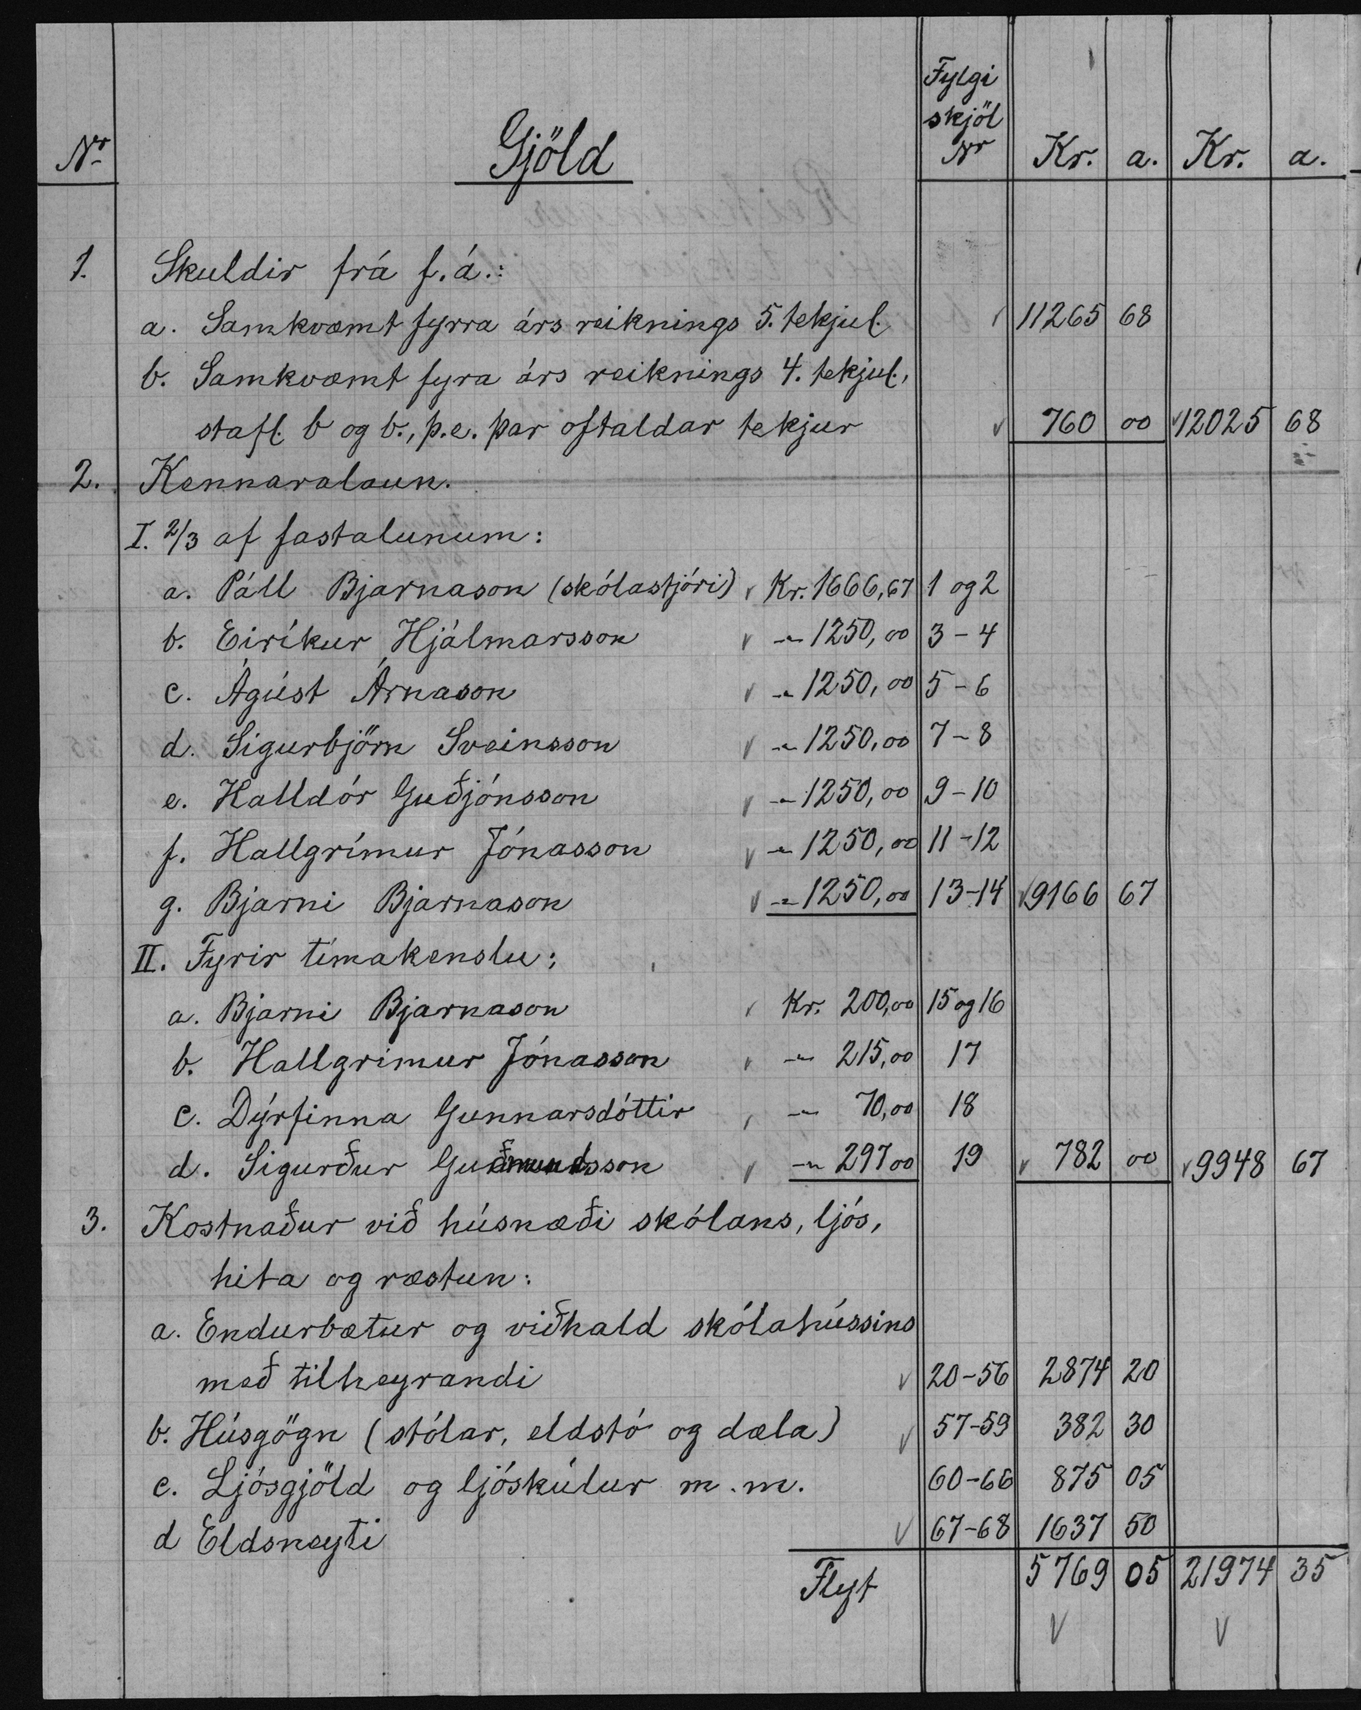 Nr Gjöld Fylgi skjöl Nr Kr. a. Kr. a.
1. Skuldir frá f.á.:
a. Samkvæmt fyrra árs reiknings 5. tekjul. 11265 68
b. Samkvæmt fyra árs reiknings 4. tekjul.,
stafl. b og b., þ.e. þar oftaldar tekjur 760 00 12025 68
2. Kennaralaun.
I. 2/3 af fastalunum:
a. Páll Bjarnason (skólastjóri) Kr. 1666,67 1 og 2
b. Eiríkur Hjálmarsson -"- 1250,00 3-4
c. Ágúst Árnason -"- 1250,00 5-6
d. Sigurbjörn Sveinsson -"- 1250,00 7-8
e. Halldór Guðjónsson -"- 1250,00 9-10
f. Hallgrímur Jónasson -"- 1250,00 11-12
g. Bjarni Bjarnason -"- 1250,00 13-14 9166 67
II. Fyrir tímakenslu:
a. Bjarni Bjarnason Kr. 200,00 15 og 16
b. Hallgrímur Jónasson -"- 215,00 17
c. Dýrfinna Gunnarsdóttir -"- 70,00 18
d. Sigurður Guðmundsson -"- 297 00 19 782 00 9948 67
3. Kostnaður við húsnæði skólans, ljós,
hita og ræstun:
a. Endurbætur og viðhald skólahússins
með tilheyrandi 20-56 2874 20
b. Húsgögn (stólar, eldstó og dæla) 57-59 382 30
c. Ljósgjöld og ljóskúlur m.m. 60-66 875 05
d Eldsneyti 67-68 1637 50
Flyt 5769 05 21974 35